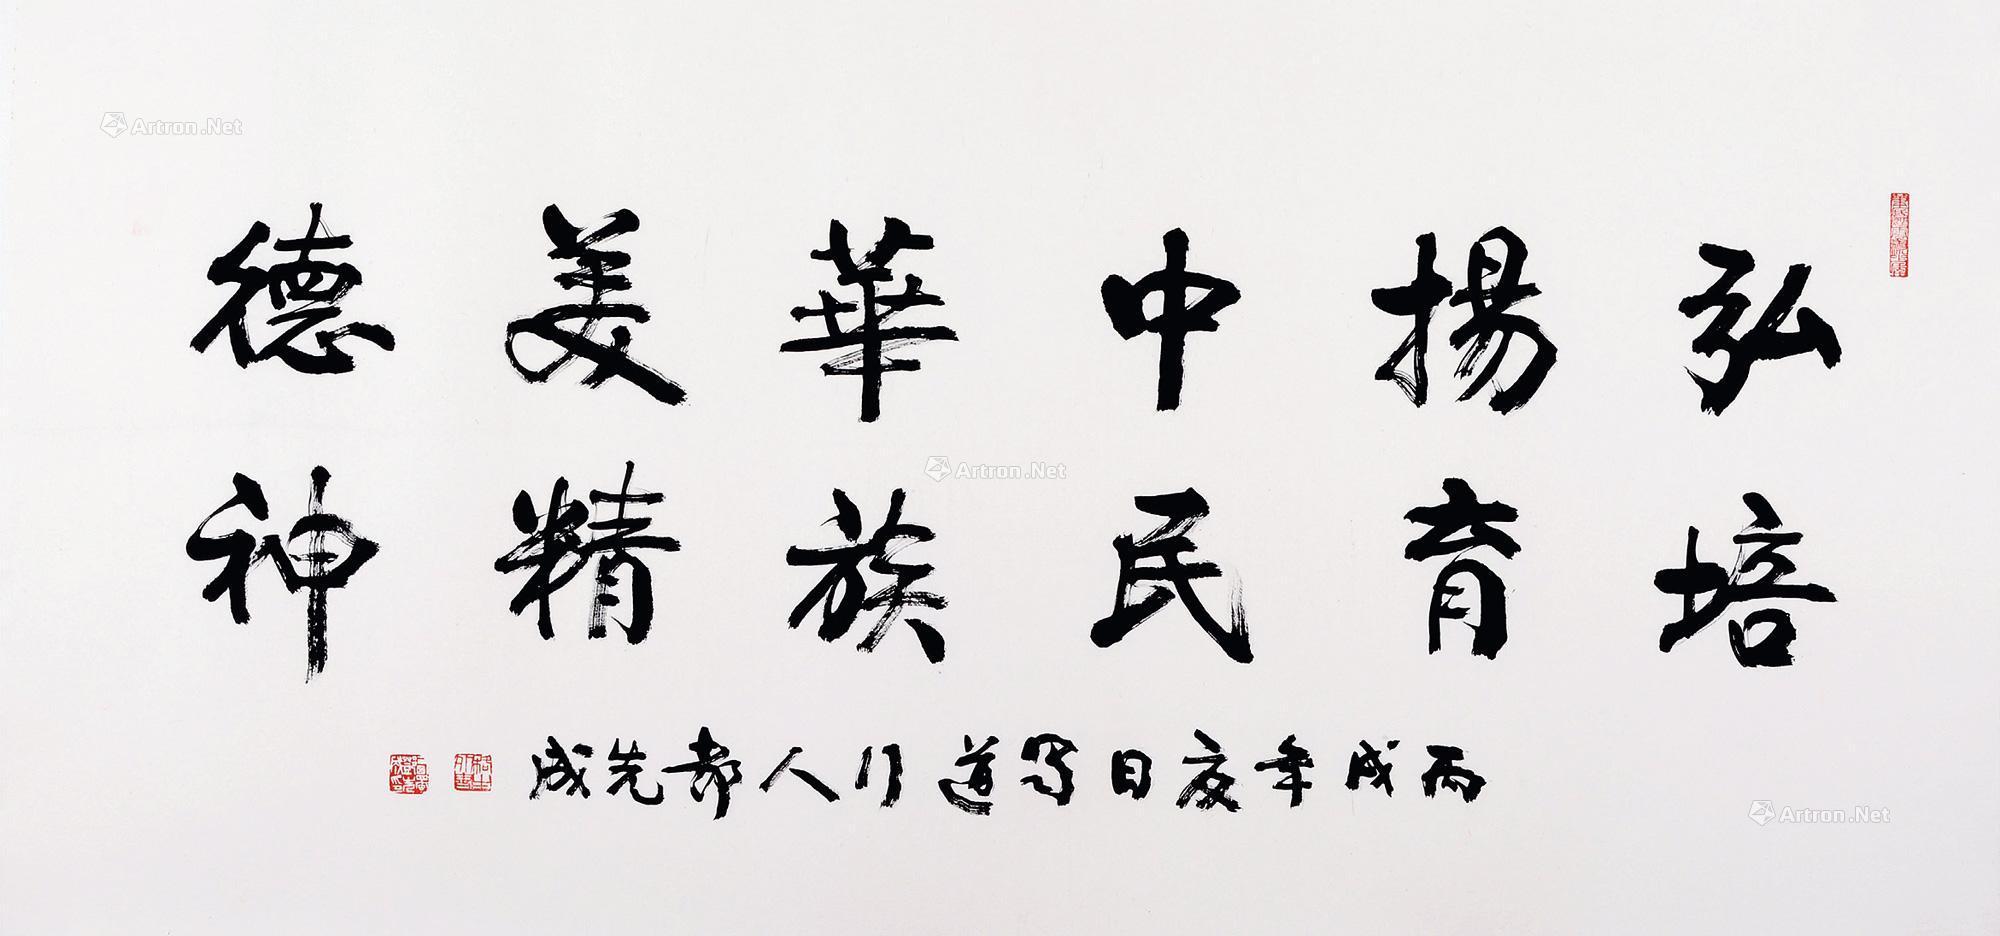 弘揚中華美德
培育民族精神
丙戌年夏日写道行人先成
Artron.Net
Artron.Net
Artron.Net